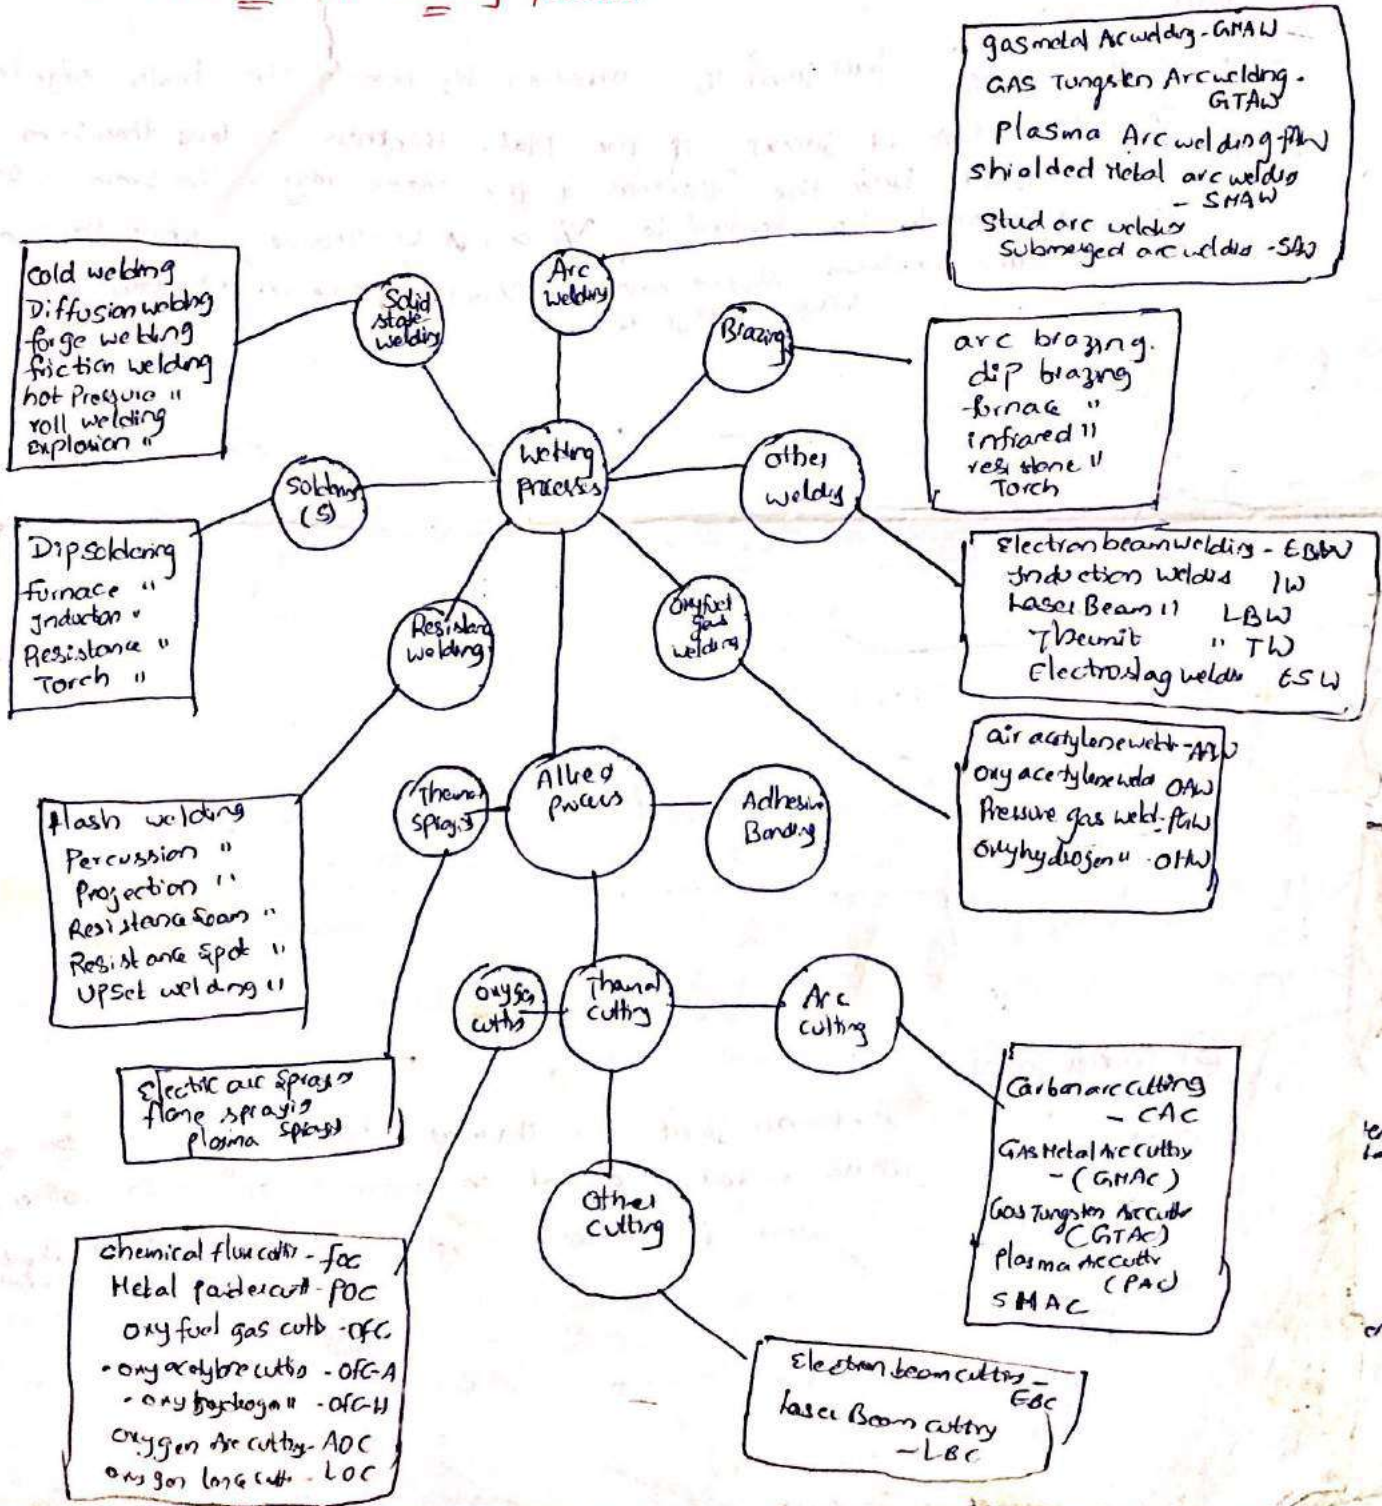 gas metal Arc welding - GMAW
GAS Tungsten Arc welding -
GTAW
Plasma Arc welding - PAW
shielded Metal arc welding
- SMAW
Stud arc welding
Submerged arc welding - SAW
Arc
welding
Solid
state
welding
cold welding
Diffusion welding
forge welding
friction welding
hot Pressure "
roll welding
Explosion "
Brazing
arc brazing.
dip brazing
furnace "
infrared "
resistance "
Torch
Welding
processes
Other
welding
Soldering
(S)
Dip soldering
furnace "
Induction "
Resistance "
Torch "
Electron beam welding - EBW
Induction welding IW
Laser Beam " LBW
Thermit " TW
Electroslag welding ESW
Resistance
welding
Oxyfuel
gas
welding
air acetylene weld - AAW
Oxy acetylene weld OAW
Pressure gas weld - PGW
Oxyhydrogen " - OHW
flash welding
Percussion "
Projection "
Resistance Seam "
Resistance Spot "
UPSet welding "
Thermal
Spraying
Allied
process
Adhesive
Bonding
Electric arc Spraying
flame spraying
plasma spraying
Oxygen
cutting
Thermal
cutting
Arc
cutting
Carbon arc cutting
- CAC
GAS Metal Arc cutting
- (GMAC)
Gas Tungsten Arc cutting
(GTAC)
Plasma Arc cutting
(PAC)
SMAC
Other
cutting
chemical flux cutting - FOC
Metal powder cutt - POC
Oxy fuel gas cutting - OFC
• Oxy acetylene cutting - OFC-A
• Oxy hydrogen " - OFC-H
Oxygen Arc cutting - AOC
Oxygen lance cutt - LOC
Electron beam cutting -
EBC
Laser Beam cutting
- LBC